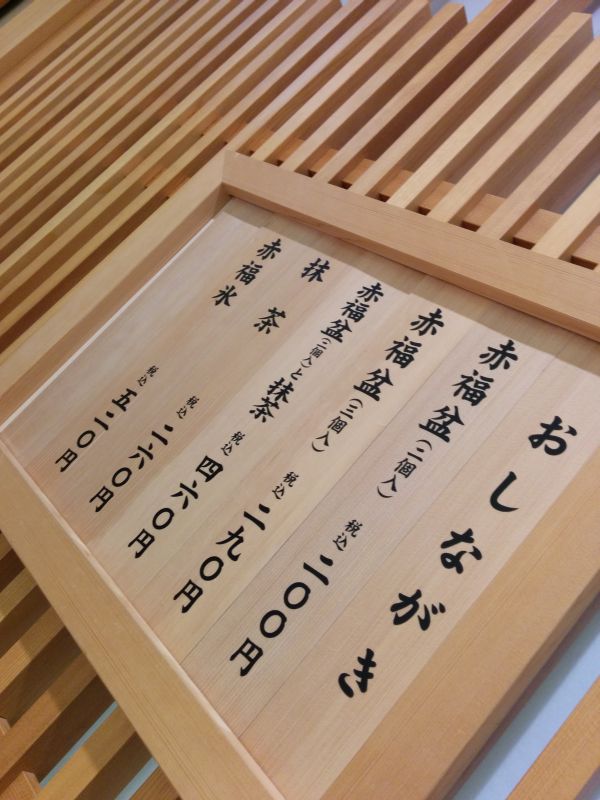 おしながき
赤福盆(二個入) 税込 二〇〇円
赤福盆(三個入) 税込 二九〇円
赤福盆(二個入)と抹茶 税込 四六〇円
抹茶 税込 二六〇円
赤福氷 税込 五二〇円